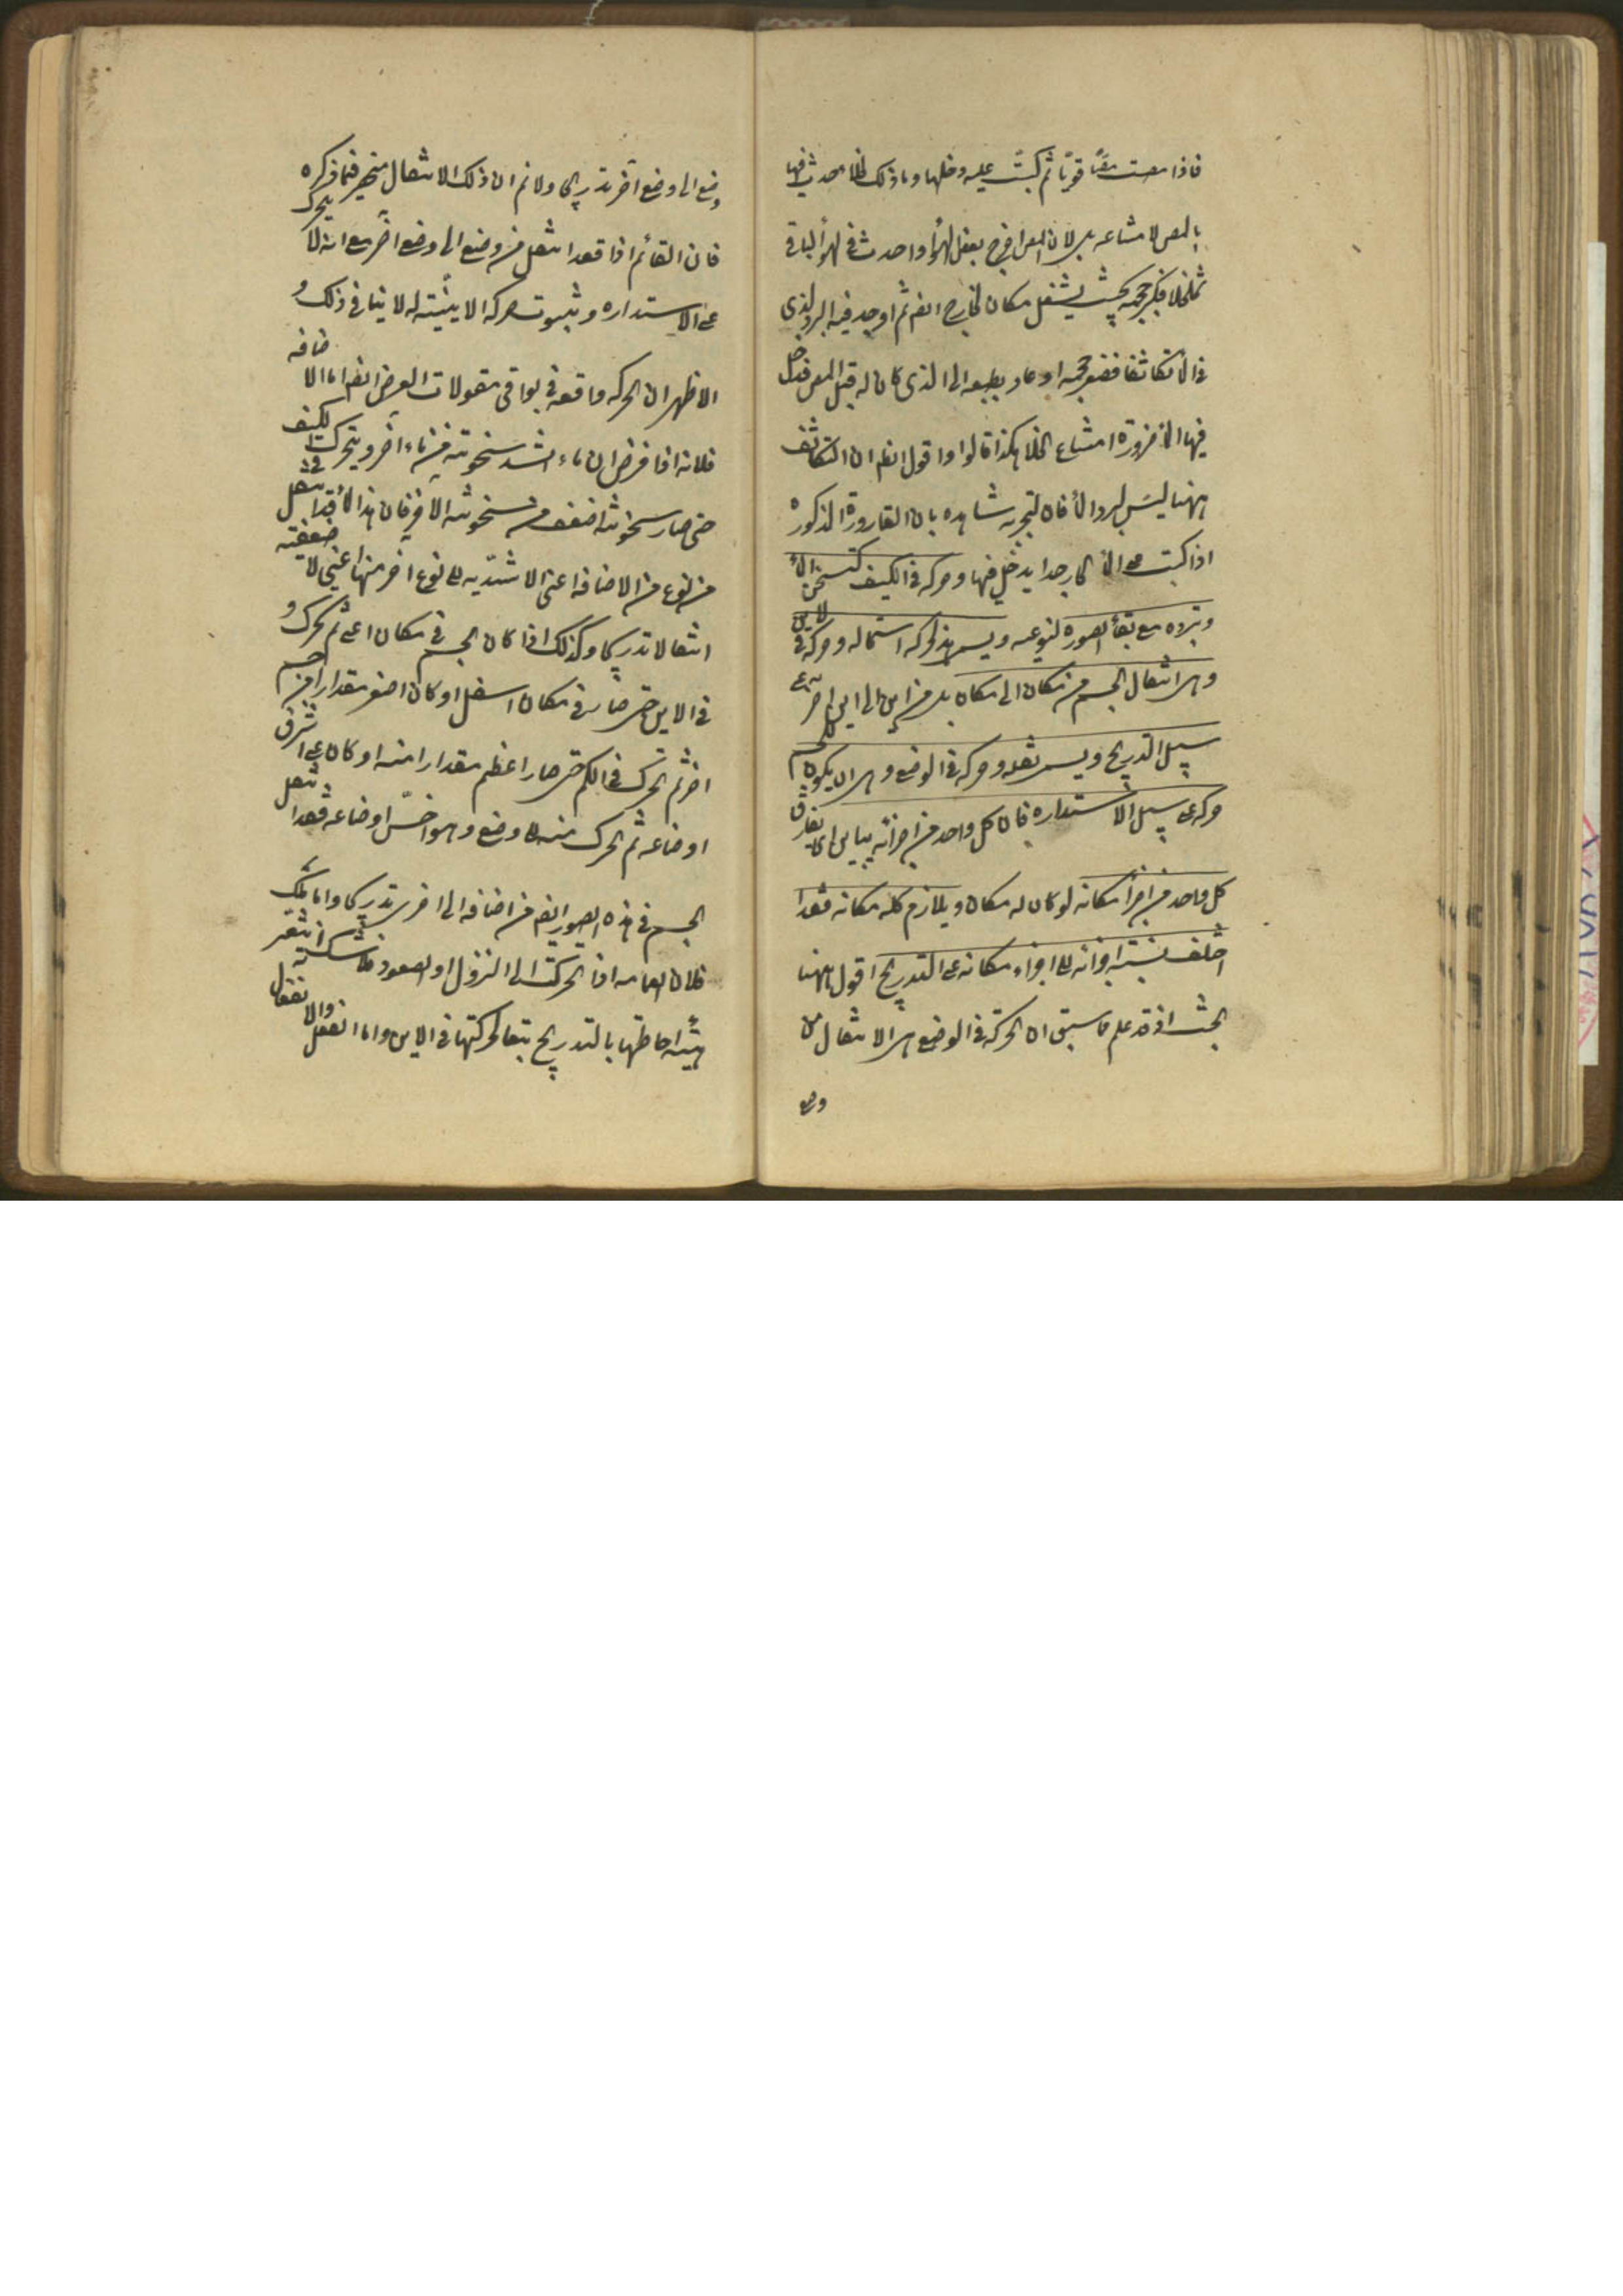 فاذا مصت مصًّا قويًّا ثم كبّت عليه دخلها وما ذلك لخلاء حدث فيها
بالمص لامتناعه بل لان المص اخرج بعض الهواء واحدث فى الهواء الباقى
تخلخلا فكبر حجمه بحيث يشغل مكان الخارج ايضا ثم اوجد فيه البرد الذى
فى الماء تكاثفا فصغر حجمه او عاد بطبعه الى الذى كان له قبل المص فدخل
فيها الماء ضرورة امتناع الخلا هكذا قالوا واقول ايضا ان التكاثف
ههنا ليس لبرد الماء فان التجربه شاهده بان القارورة المذكوره
اذا كبت على الماء الحار جدا يدخل فيها وحركه فى الكيف كتسخن الماء
وتبرده مع بقاء الصورة النوعيه ويسمى هذه الحركه استحاله وحركه فى الاين
وهى انتقال الجسم من مكان الى مكان بل من اين الى اين اخر على
سبيل التدريج ويسمى نقله وحركه فى الوضع وهى ان يكون للجسم
حركه على سبيل الاستداره فان كل واحد من اجزائه يباين اى يفارق
كل واحد من اجزاء مكانه لو كان له مكان ويلازم كله مكانه فقد
اختلف نسبة اجزائه الى اجزاء مكانه على التدريج اقول ههنا
بحث اذ قد علم مما سبق ان الحركة فى الوضع هى الانتقال من
وضع
وضع الى وضع آخر تدريجا ولانم ان ذلك الانتقال منحصر فيما ذكره
فان القائم اذا قعد انتقل من وضع الى وضع اخر مع انه لا يتحرك
على الاستداره وثبوت حركه الاينيّة له لا ينافى ذلك و
الاظهر ان الحركه واقعه فى بواقى مقولات العرض ايضا اما الاضافه
فلانه اذا فرض ان ماء اشد سخونته من ماء آخر ويتحرك فى الكيف
حتى صار سخونته اضعف من سخونته الاخر فان هذا الماء قد انتقل
من نوع من الاضافه اعنى الاشدّيه الى نوع اخر منها اعنى الاضعفيه
انتقالا تدريجا وكذلك اذا كان الجسم فى مكان اعلى ثم تحرك
فى الاين حتى صار فى مكان اسفل او كان اصغر مقدارا من جسم
اخر ثم تحرك فى الكم حتى صار اعظم مقدارا منه او كان على اشرف
اوضاعه ثم تحرك منه الى وضع وهو اخسّ اوضاعه فقد انتقل
الجسم فى هذه الصور ايضا من اضافه الى اخرى تدريجا واما الملك
فلان العمامه اذا تحركت الى النزول او الصعود
هيئة احاطتها بالتدريج تبعا لحركتها فى الاين واما الفعل والانفعال